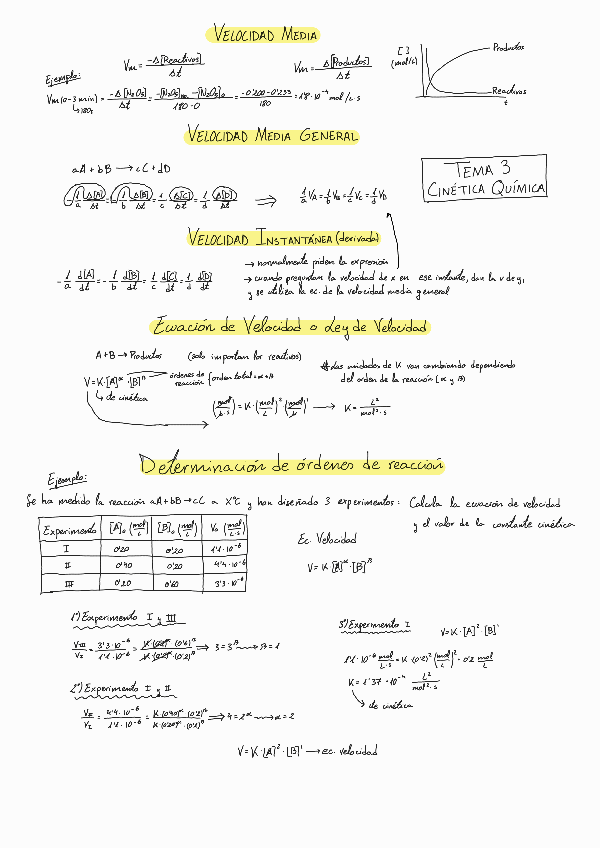 VELOCIDAD MEDIA
Vm = -Δ[Reactivos]/Δt
Vm = Δ[Productos]/Δt
[ ] (mol/L)
Productos
Reactivos
t
Ejemplo:
Vm(0-3 min) = -Δ[N₂O₅]/Δt = -[N₂O₅]₁₈₀ - [N₂O₅]₀/180-0 = -0'200-0'233/180 = 1'8·10⁻⁴ mol/L·s
↳ 180s
VELOCIDAD MEDIA GENERAL
aA + bB → cC + dD
-1/a Δ[A]/Δt = -1/b Δ[B]/Δt = 1/c Δ[C]/Δt = 1/d Δ[D]/Δt ⇒ 1/a VA = 1/b VB = 1/c VC = 1/d VD
TEMA 3
CINÉTICA QUÍMICA
VELOCIDAD INSTANTÁNEA (derivada)
→ normalmente piden la expresión
→ cuando preguntan la velocidad de x en ese instante, dan la v de y,
y se utiliza la ec. de la velocidad media general
-1/a d[A]/dt = -1/b d[B]/dt = 1/c d[C]/dt = 1/d d[D]/dt
Ecuación de Velocidad o Ley de Velocidad
A+B → Productos (solo importan los reactivos)
V = K·[A]^α·[B]^β
órdenes de reacción { orden total = α+β
↳ cte cinética
* Las unidades de K van cambiando dependiendo
del orden de la reacción [α y β)
(mol/L·s) = K·(mol/L)²·(mol/L)¹ → K = L²/mol²·s
Determinación de órdenes de reacción
Ejemplo:
Se ha medido la reacción aA+bB→cC a X°C y han diseñado 3 experimentos: Calcula la ecuación de velocidad
y el valor de la constante cinética
Experimento [A]₀ (mol/L) [B]₀ (mol/L) V₀ (mol/L·s)
I 0'20 0'20 1'1·10⁻⁶
II 0'40 0'20 4'4·10⁻⁶
III 0'20 0'60 3'3·10⁻⁶
Ec. Velocidad
V = K [A]^α·[B]^β
1º) Experimento I y III
VIII/VI = 3'3·10⁻⁶/1'1·10⁻⁶ = K·(0'2)^α·(0'6)^β/K·(0'2)^α·(0'2)^β ⇒ 3 = 3^β → β = 1
2º) Experimento I y II
VII/VI = 4'4·10⁻⁶/1'1·10⁻⁶ = K·(0'40)^α·(0'2)^β/K·(0'20)^α·(0'2)^β ⇒ 4 = 2^α → α = 2
3º) Experimento I
V = K·[A]²·[B]¹
1'1·10⁻⁶ mol/L·s = K·(0'2)² (mol/L)²·0'2 mol/L
K = 1'37·10⁻⁴ L²/mol²·s
↳ cte cinética
V = K·[A]²·[B]¹ → ec. velocidad